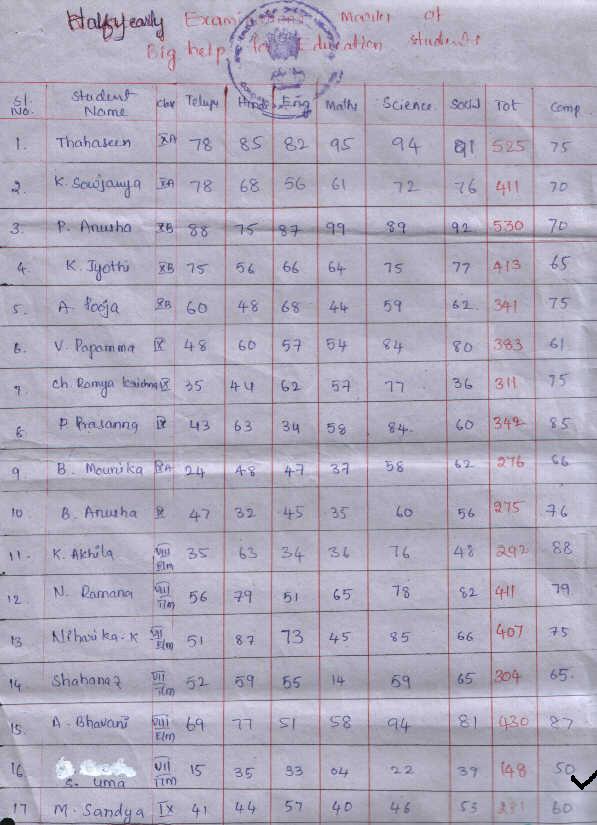 Halfyearly Examinations Marks of
Big help for Education students
Sl. No. Student Name Class Telugu Hindi Eng Maths Science Social Tot Comp
1. Thahaseen XA 78 85 82 95 94 91 525 75
2. K. Sowjanya XA 78 68 56 61 72 76 411 70
3. P. Anusha XB 88 75 87 99 89 92 530 70
4. K. Jyothi XB 75 56 66 64 75 77 413 65
5. A. Pooja XB 60 48 68 44 59 62 341 75
6. V. Papamma IX 48 60 57 54 84 80 383 61
7. Ch. Ramya Krishna IX 35 44 62 57 77 36 311 75
8 P Prasanna IX 43 63 34 58 84 60 342 85
9 B. Mounika IXA 24 48 47 37 58 62 276 66
10 B. Anusha IX 47 32 45 35 60 56 275 76
11. K. Akhila VIII E/m 35 63 34 36 76 48 292 88
12. N. Ramana VIII T/m 56 79 51 65 78 82 411 79
13 Niharika. K VII E/m 51 87 73 45 85 66 407 75
14 Shahanaz VII T/m 52 59 55 14 59 65 304 65.
15. A. Bhavani VIII E/m 69 77 51 58 94 81 430 87
16 S. Uma VII T/m 15 35 33 04 22 39 148 50
17 M. Sandya IX 41 44 57 40 46 53 281 60